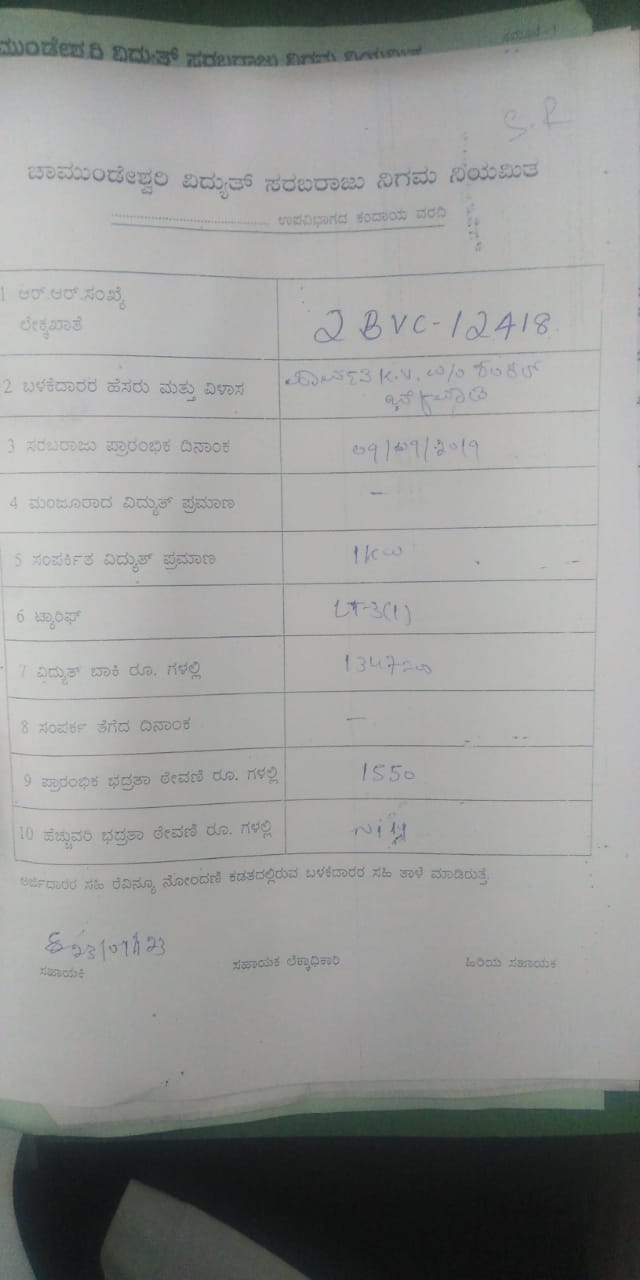 ಚಾಮುಂಡೇಶ್ವರಿ ವಿದ್ಯುತ್ ಸರಬರಾಜು ನಿಗಮ ನಿಯಮಿತ
S.R
ಚಾಮುಂಡೇಶ್ವರಿ ವಿದ್ಯುತ್ ಸರಬರಾಜು ನಿಗಮ ನಿಯಮಿತ
.......................................... ಉಪವಿಭಾಗದ ಕಂದಾಯ ವರದಿ
1 ಆರ್.ಆರ್.ಸಂಖ್ಯೆ
ಲೆಕ್ಕಖಾತೆ
2BVC-12418
2 ಬಳಕೆದಾರರ ಹೆಸರು ಮತ್ತು ವಿಳಾಸ
K.V. W/O ಶಂಕರ್
3 ಸರಬರಾಜು ಪ್ರಾರಂಭಿಕ ದಿನಾಂಕ
4 ಮಂಜೂರಾದ ವಿದ್ಯುತ್ ಪ್ರಮಾಣ
-
5 ಸಂಪರ್ಕಿತ ವಿದ್ಯುತ್ ಪ್ರಮಾಣ
1kw
6 ಟ್ಯಾರಿಫ್
LT-3(1)
7 ವಿದ್ಯುತ್ ಬಾಕಿ ರೂ. ಗಳಲ್ಲಿ
8 ಸಂಪರ್ಕ ತೆಗೆದ ದಿನಾಂಕ
-
9 ಪ್ರಾರಂಭಿಕ ಭದ್ರತಾ ಠೇವಣಿ ರೂ. ಗಳಲ್ಲಿ
1550
10 ಹೆಚ್ಚುವರಿ ಭದ್ರತಾ ಠೇವಣಿ ರೂ. ಗಳಲ್ಲಿ
ಅರ್ಜಿದಾರರ ಸಹಿ ರೆವಿನ್ಯೂ ನೋಂದಣಿ ಕಡತದಲ್ಲಿರುವ ಬಳಕೆದಾರರ ಸಹಿ ತಾಳೆ ಮಾಡಿರುತ್ತೆ.
ಸಹಾಯಕ
ಸಹಾಯಕ ಲೆಕ್ಕಾಧಿಕಾರಿ
ಹಿರಿಯ ಸಹಾಯಕ